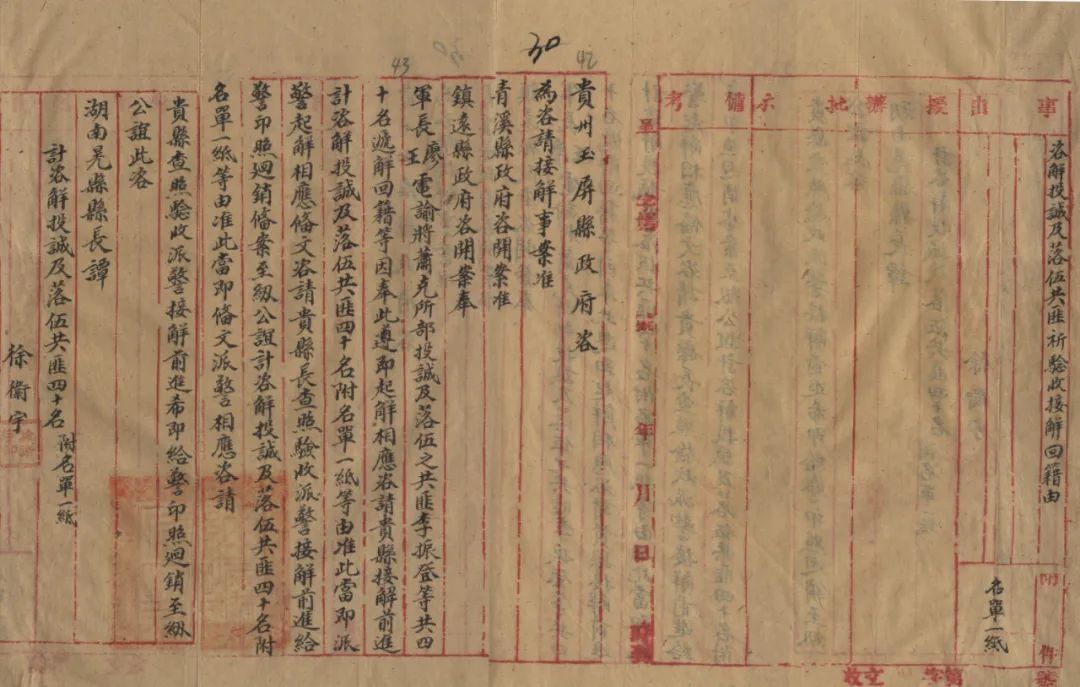 事由
擬辦
批示
備考
咨解投誠及落伍共匪祈驗收接解回籍由
附件
名單一紙
收文 字第 號
年 月 日 時到
30
42
43
貴州玉屏縣政府咨
為咨請接解事案准
青溪縣政府咨開案准
鎮遠縣政府咨開案奉
軍長廖王電諭將蕭克所部投誠及落伍之共匪李振登等共四
十名遞解回籍等因奉此遵即起解相應咨請貴縣接解前進
計咨解投誠及落伍共匪四十名附名單一紙等由准此當即派
警起解相應俻文咨請貴縣長查照驗收派警接解前進給
警印照迴銷俻案至紉公誼計咨解投誠及落伍共匪四十名附
名單一紙等由准此當即俻文派警相應咨請
貴縣查照驗收派警接解前進希即給警印照迴銷至紉
公誼此咨
湖南晃縣縣長譚
計咨解投誠及落伍共匪四十名 附名單一紙
徐衛宇